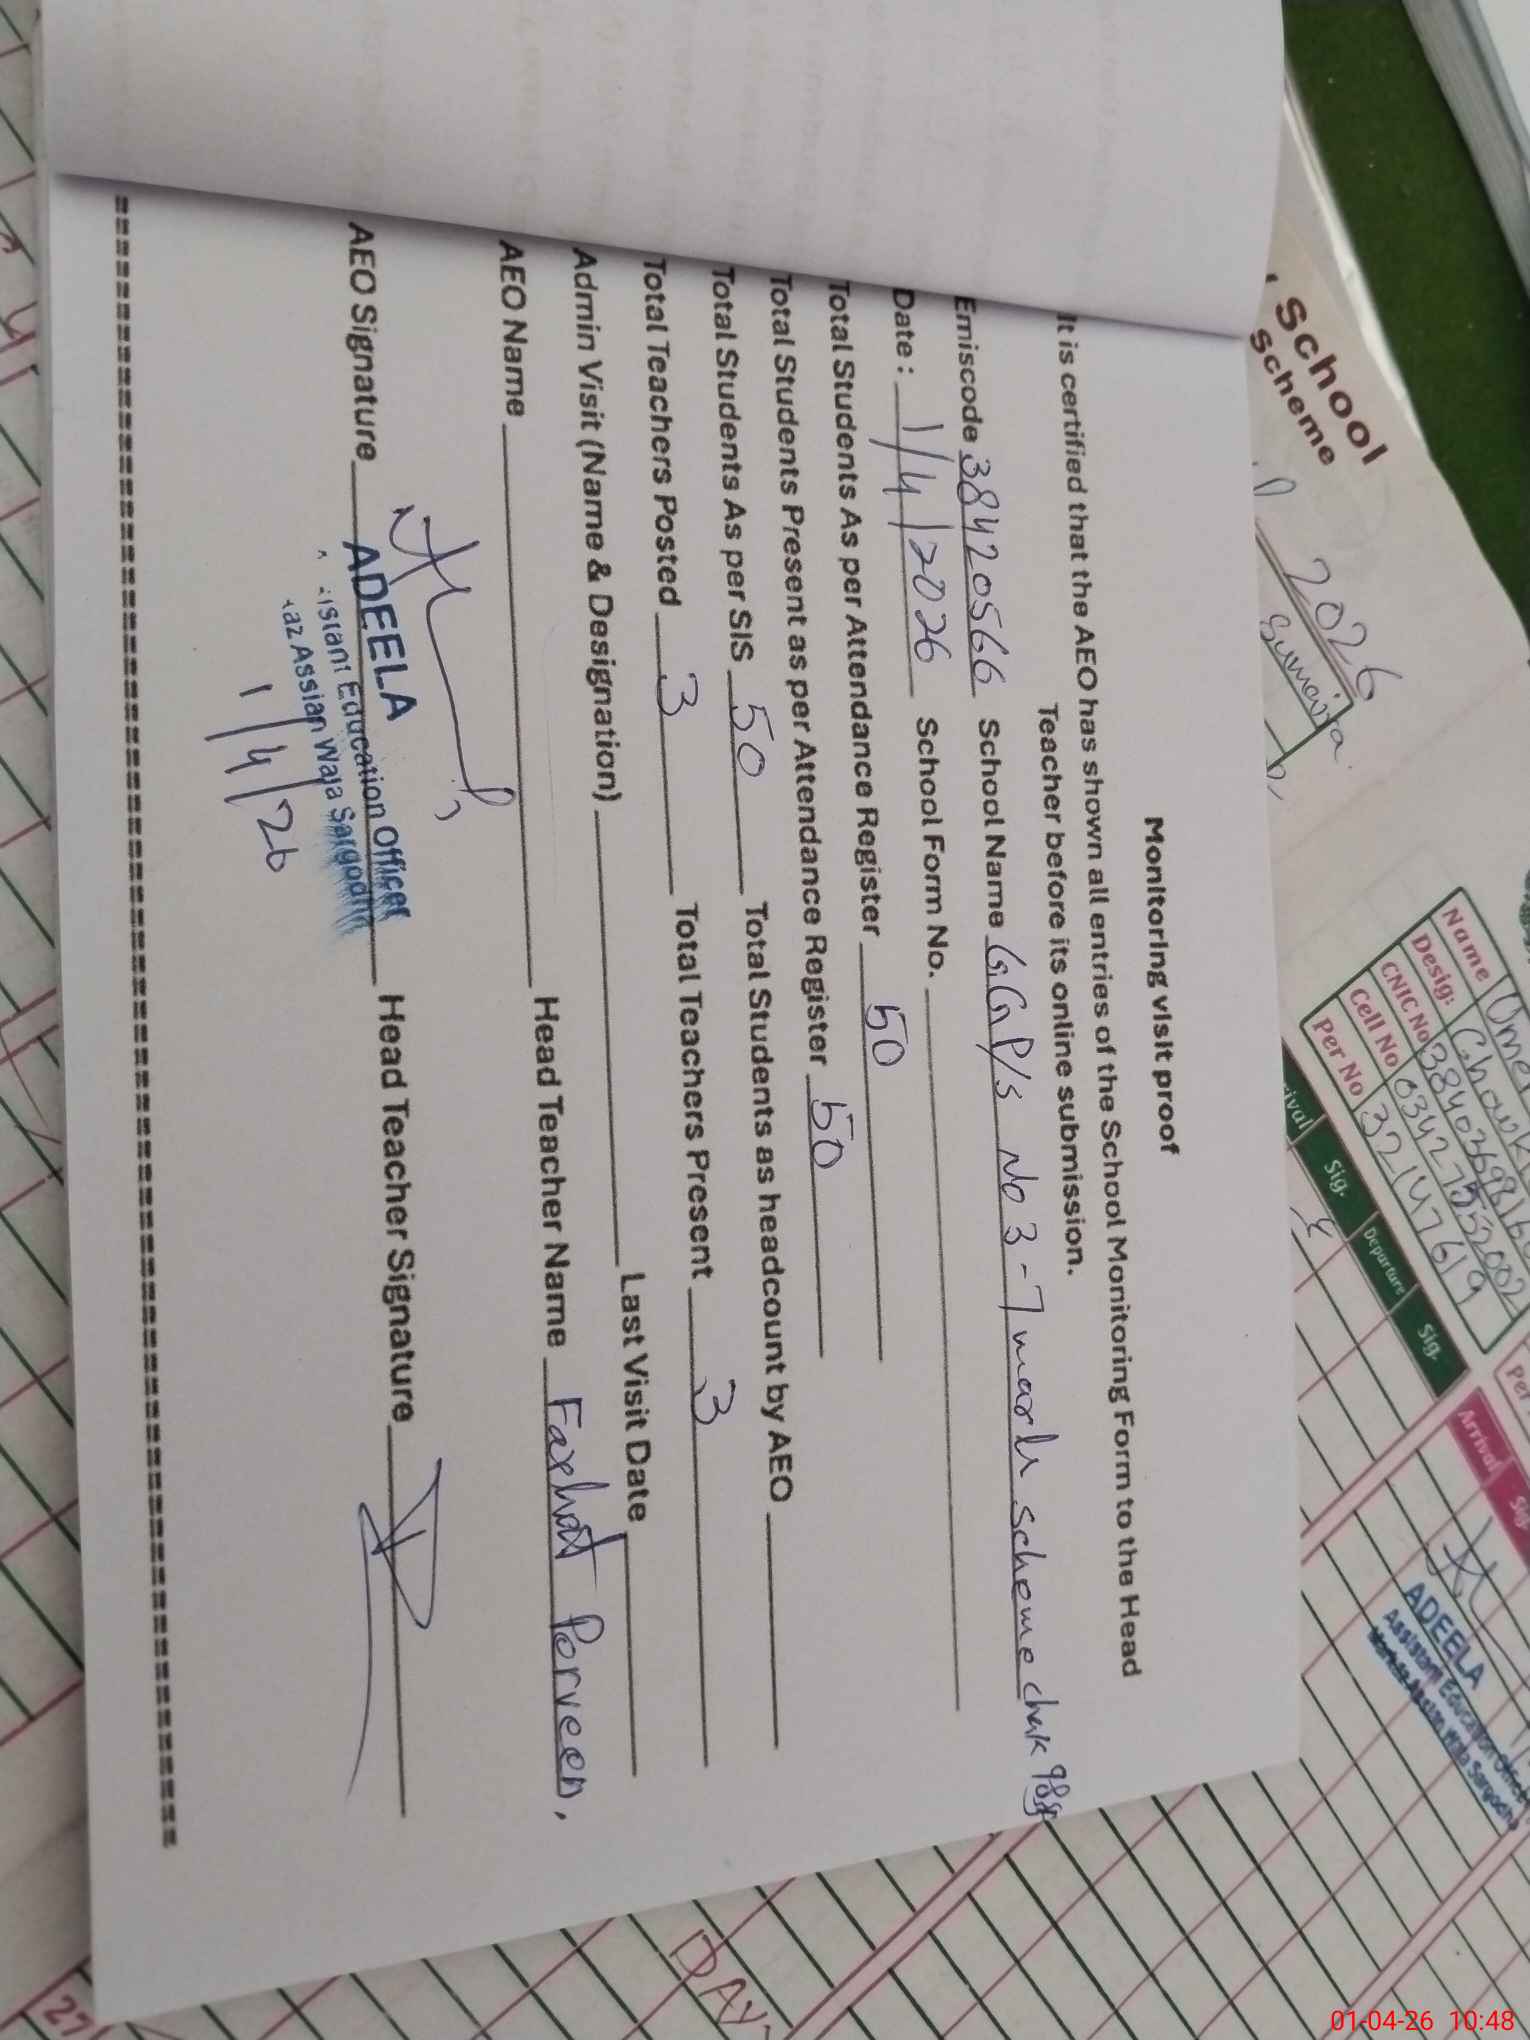 Monitoring visit proof
It is certified that the AEO has shown all entries of the School Monitoring Form to the Head
Teacher before its online submission.
Emiscode 38420566 School Name G.G.P/S No 3-7 marla scheme chak 98
Date : 1/4/2026 School Form No.
Total Students As per Attendance Register 50
Total Students Present as per Attendance Register 50
Total Students As per SIS 50 Total Students as headcount by AEO
Total Teachers Posted 3 Total Teachers Present 3
Admin Visit (Name & Designation) Last Visit Date
AEO Name Head Teacher Name Farhat Perveen,
AEO Signature Head Teacher Signature
ADEELA
Education Officer
Assian Wala Sargodha
1/4/26
School
Scheme
2026
Sumaira
Name
Desig:
CNIC No
Cell No
Per No 32147619
Sig.
Departure
Sig.
Arrival
ADEELA
Assistant Education Officer
Wala Sargodha
DAY
27
01-04-26 10:48